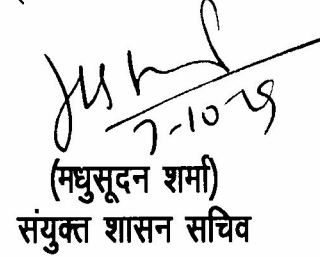 7-10-25
(मधुसूदन शर्मा)
संयुक्त शासन सचिव